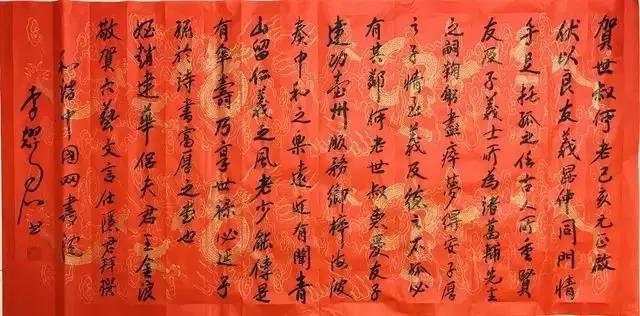 賀世叔何老己亥元正啟
伏以良友義仲同門情
手足托孤之任古人所重賢
友及子義士所為諸葛輔先主
之嗣鞠躬盡瘁夢得安子厚
之子情至義及後之不孤必
有其鄰何老世叔愛友子
建功臺州服務梓海波
奏中和之樂遠近有聞青
山留仁義之風老少能傳是
有年壽乃享世祿必延子
孫於詩書富厚之也
姪趙建華侶夫君王金浪
敬賀六藝文言任讓君拜撰
和諧中國网書法
李書